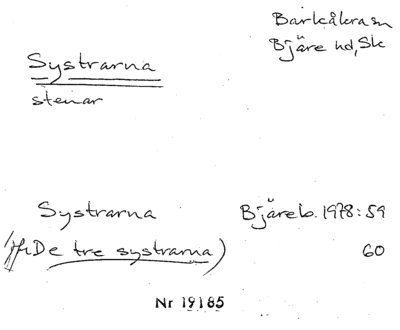 Barkåkra sn
Bjäre hd, Sk
Systrarna
stenar
Systrarna Bjäreb. 1978:59
(jfr De tre systrarna) 60
Nr 19185